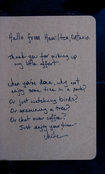 Hello from Hamilton, Ontario
Thank you for picking up
my little effort.
When you're done, why not
enjoy some time in a park?
Or just watching birds?
Or announcing a tree?
Or chat over coffee?
Just enjoy your time